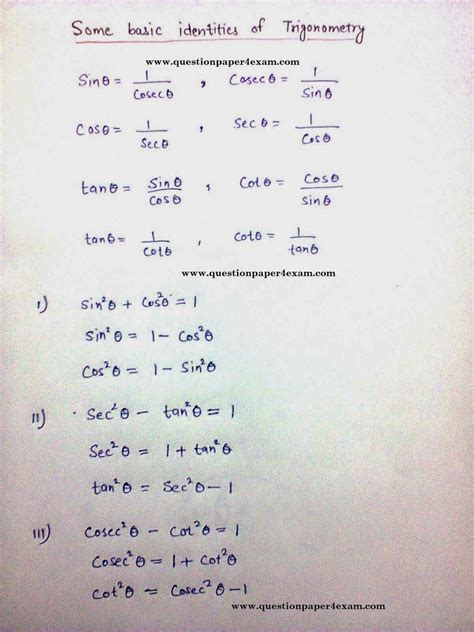 Some basic identities of Trigonometry
www.questionpaper4exam.com
Sinθ = 1/Cosecθ , Cosecθ = 1/Sinθ
Cosθ = 1/Secθ , Secθ = 1/Cosθ
tanθ = Sinθ/Cosθ , Cotθ = Cosθ/Sinθ
tanθ = 1/Cotθ , Cotθ = 1/tanθ
www.questionpaper4exam.com
I) Sin²θ + Cos²θ = 1
Sin²θ = 1 - Cos²θ
Cos²θ = 1 - Sin²θ
II) Sec²θ - tan²θ = 1
Sec²θ = 1 + tan²θ
tan²θ = Sec²θ - 1
III) Cosec²θ - Cot²θ = 1
Cosec²θ = 1 + Cot²θ
Cot²θ = Cosec²θ - 1
www.questionpaper4exam.com